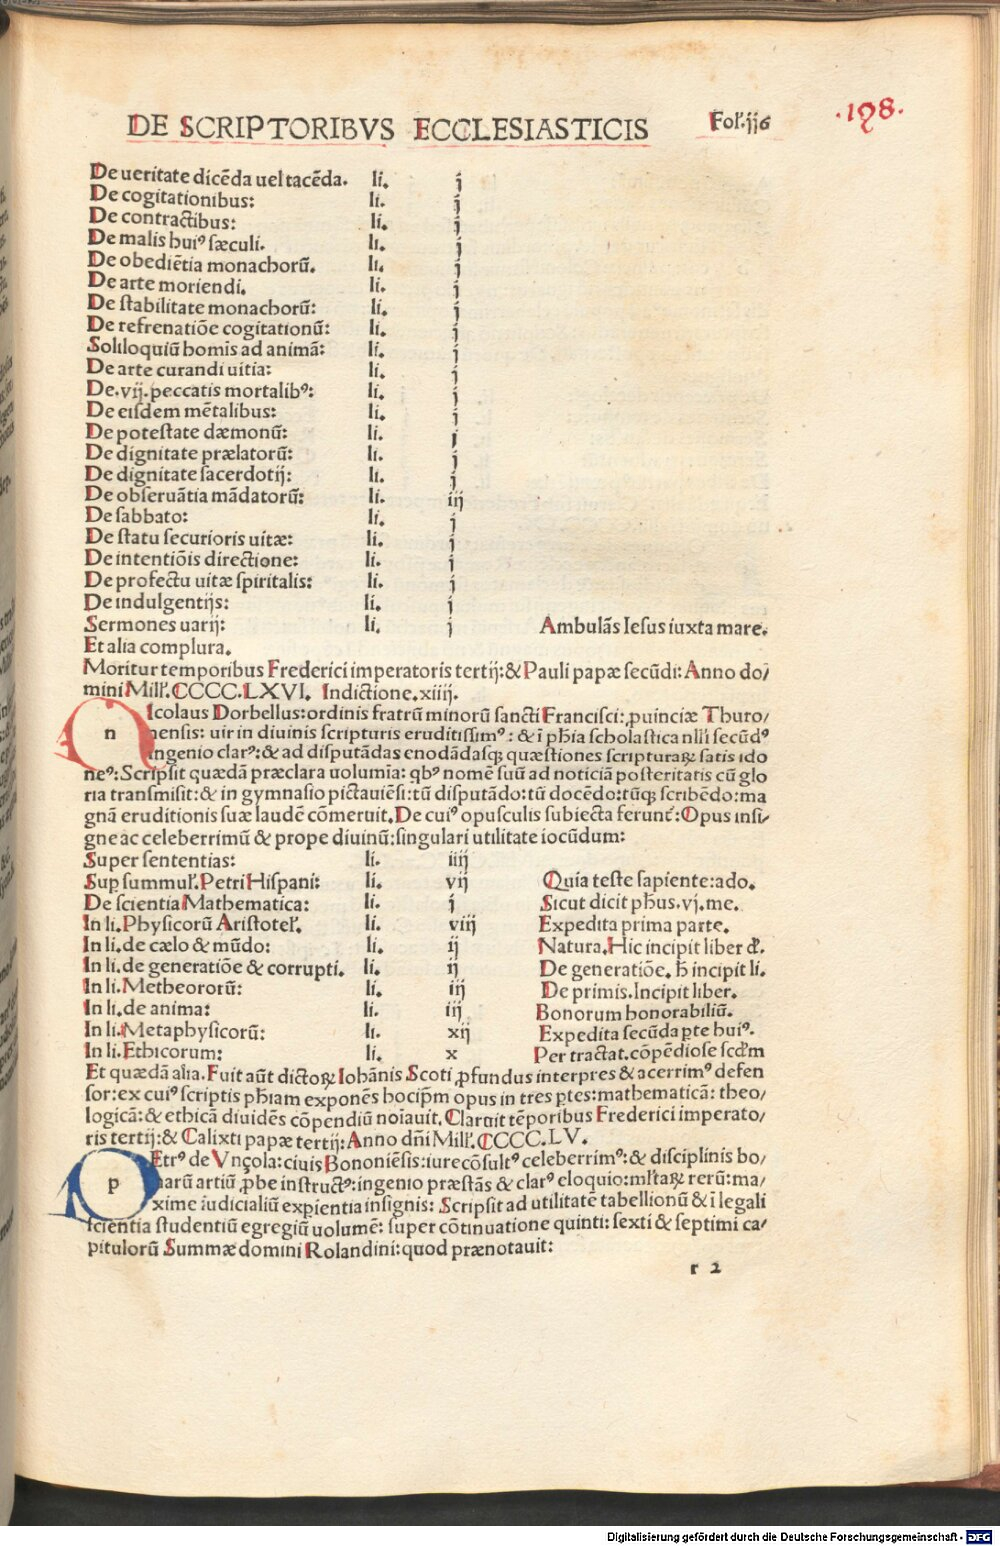 DE SCRIPTORIBVS ECCLESIASTICIS Fol.jj6 .198.
De ueritate dicēda uel tacēda. li. j
De cogitationibus: li. j
De contractibus: li. j
De malis huiꝰ sæculi. li. j
De obediētia monachorū. li. j
De arte moriendi. li. j
De stabilitate monachorū: li. j
De refrenatiōe cogitationū: li. j
Soliloquiū homīs ad animā: li. j
De arte curandi uitia: li. j
De.vij.peccatis mortalibꝰ: li. j
De eisdem mētalibus: li. j
De potestate dæmonū: li. j
De dignitate prælatorū: li. j
De dignitate sacerdotij: li. j
De obseruātia mādatorū: li. iij
De sabbato: li. j
De statu securioris uitæ: li. j
De intentiōis directione: li. j
De profectu uitæ spiritalis: li. j
De indulgentijs: li. j
Sermones uarij: li. j Ambulās Iesus iuxta mare.
Et alia complura.
Moritur temporibus Frederici imperatoris tertij:& Pauli papæ secūdi: Anno do/
mini Mill'.CCCC.LXVI. Indictione.xiiij.
nIcolaus Dorbellus:ordinis fratrū minorū sancti Francisci: ꝓuinciæ Thuro/
nensis: uir in diuinis scripturis eruditissimꝰ: & ī ph̄ia scholastica nlłi secūdꝰ
ingenio clarꝰ:& ad disputādas enodādasqꝫ quæstiones scripturaꝝ satis ido
neꝰ:Scripsit quædā præclara uolumīa: qbꝰ nomē suū ad noticiā posteritatis cū glo
ria transmisit:& in gymnasio pictauiēsi:tū disputādo:tū docēdo:tūqꝫ scribēdo:ma
gnā eruditionis suæ laudē cōmeruit.De cuiꝰ opusculis subiecta ferunt̄:Opus insi/
gne ac celeberrimū & prope diuinū:singulari utilitate iocūdum:
Super sententias: li. iiij
Suꝑ summul'.Petri Hispani: li. vij Quia teste sapiente:ado.
De scientia Mathematica: li. j Sicut dicit ph̄us.vj.me.
In li.Physicorū Aristotel'. li. viij Expedita prima parte.
In li.de cælo & mūdo: li. ij Natura.Hic incipit liber d'.
In li.de generatiōe & corrupti. li. ij De generatiōe. h̄ incipit li.
In li.Metheororū: li. iij De primis.Incipit liber.
In li.de anima: li. iij Bonorum honorabiliū.
In li.Metaphysicorū: li. xij Expedita secūda ꝑte huiꝰ.
In li.Ethicorum: li. x Per tractat.cōpēdiose scd̄m
Et quædā alia.Fuit aūt dictoꝝ Iohānis Scoti ꝓfundus interpres & acerrimꝰ defen
sor:ex cuiꝰ scriptis ph̄iam exponēs hocip̄m opus in tres ꝑtes:mathematicā: theo/
logicā:& ethicā diuidēs cōpendiū noīauit.Claruit tēporibus Frederici imperato/
ris tertij:& Calixti papæ tertij:Anno dn̄i Mill'.CCCC.LV.
pEtrꝰ de Vnçola:ciuis Bononiēsis:iurecōsultꝰ celeberrimꝰ:& disciplinis bo/
narū artiū ꝓbe instructꝰ:ingenio præstās & clarꝰ eloquio:młtaꝝ rerū:ma/
xime iudicialiū exꝑientia insignis: Scripsit ad utilitatē tabellionū & ī legali
scientia studentiū egregiū uolumē: super cōtinuatione quinti: sexti & septimi ca/
pitulorū Summæ domini Rolandini:quod prænotauit:
r 2
Digitalisierung gefördert durch die Deutsche Forschungsgemeinschaft - DFG